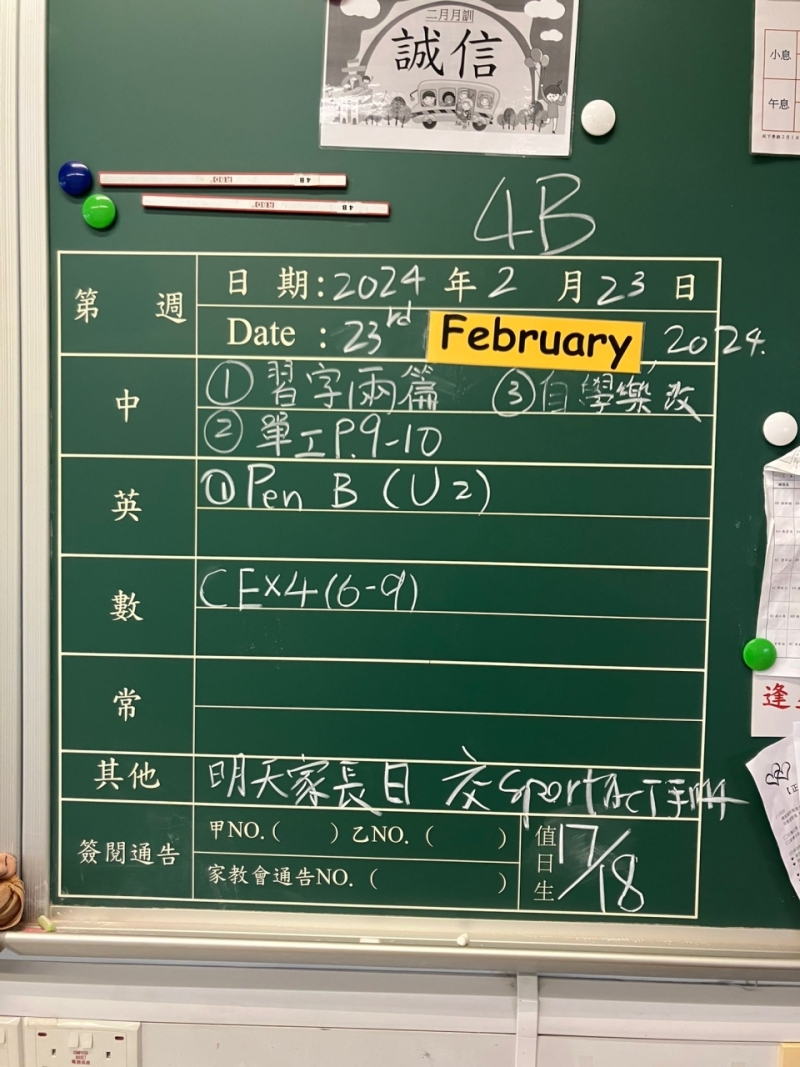 二月月訓
誠信
小息
午息
4B
第 週
日 期:2024 年 2 月 23 日
Date : 23rd February, 2024.
中
① 習字兩篇 ③自學樂改
② 單工P.9-10
英
① Pen B (U2)
數
CEX4(6-9)
常
其他
明天家長日 交SportACT手冊
簽閱通告
甲NO.( ) 乙NO. ( )
家教會通告NO. ( )
值日生
17/18
逢